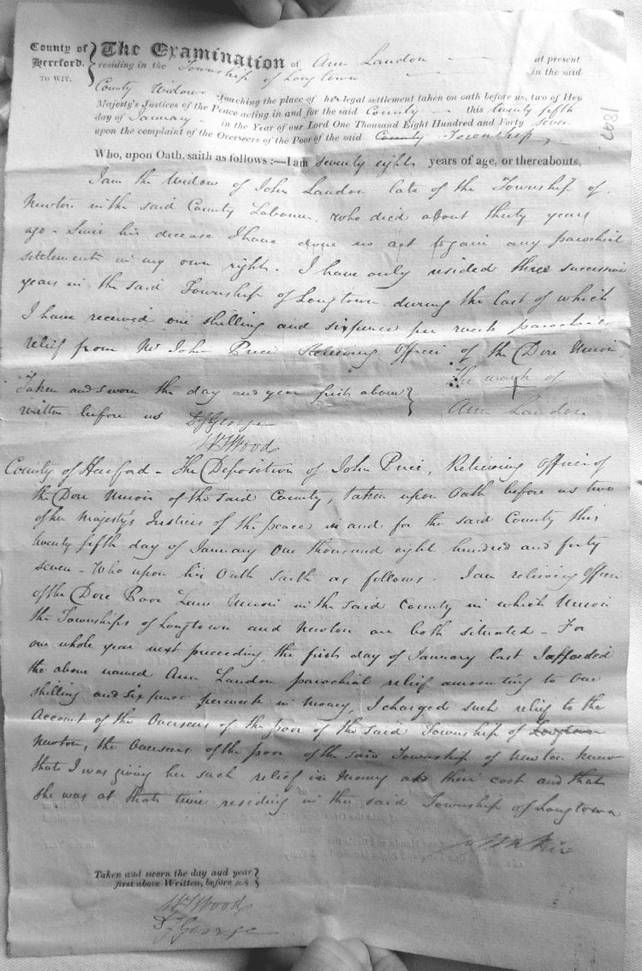 County of Hereford, TO WIT. } The Examination of Ann Landon at present
residing in the Township of Longtown in the said
County Widow touching the place of her legal settlement taken on oath before us, two of Her
Majesty's Justices of the Peace acting in and for the said County this twenty fifth
day of January in the Year of our Lord One Thousand Eight Hundred and Forty Seven
upon the complaint of the Overseers of the Poor of the said County Township,
Who, upon Oath, saith as follows:—I am seventy eight years of age, or thereabouts,
I am the Widow of John Landon late of the Township of
Newton in the said County Labourer, who died about thirty years
ago - Since his decease I have done no act to gain any parochial
settlement in my own right. I have only resided three successive
years in the said Township of Longtown during the last of which
I have received one shilling and sixpence per week parochial
relief from Mr John Price Relieving Officer of the Dore Union
Taken and sworn the day and year first above } The mark of
written before us
Ann Landon
George
Wood
County of Hereford - The Deposition of John Price, Relieving Officer of
the Dore Union of the said County, taken upon Oath before us two
of her Majesty's Justices of the peace in and for the said County this
twenty fifth day of January One thousand eight hundred and forty
seven - Who upon his Oath saith as follows. I am relieving Officer
of the Dore Poor Law Union in the said County in which Union
the Townships of Longtown and Newton are both situated - For
one whole year next preceding the first day of January last I afforded
the above named Ann Landon parochial relief amounting to One
shilling and sixpence per week in money, I charged such relief to the
Account of the Overseers of the poor of the said Township of Longtown
Newton, the Overseers of the poor of the said Township of Newton knew
that I was giving her such relief in money at their cost and that
she was at that time residing in the said Township of Longtown
Price
Taken and sworn the day and year
first above Written, before us }
Wood
George
1847